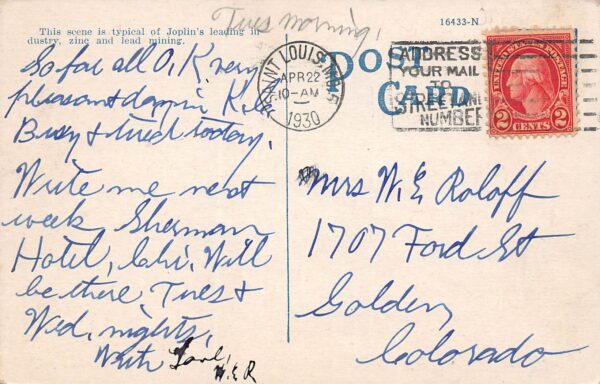 Tues morning,
16433-N
This scene is typical of Joplin's leading in-
dustry, zinc and lead mining.
POST
CARD
SAINT LOUIS, MO.
APR 22
10-AM
1930
ADDRESS
YOUR MAIL
TO
STREET AND
NUMBER
UNITED STATES POSTAGE
2 CENTS 2
So far all O.K. very
pleasant day in K.C.
Busy & tired today.
Write me next
week Sherman
Hotel, Chi. Will
be there Tues &
Wed. nights,
With Love,
W.E.R
Mrs W.E. Roloff
1707 Ford St
Golden,
Colorado